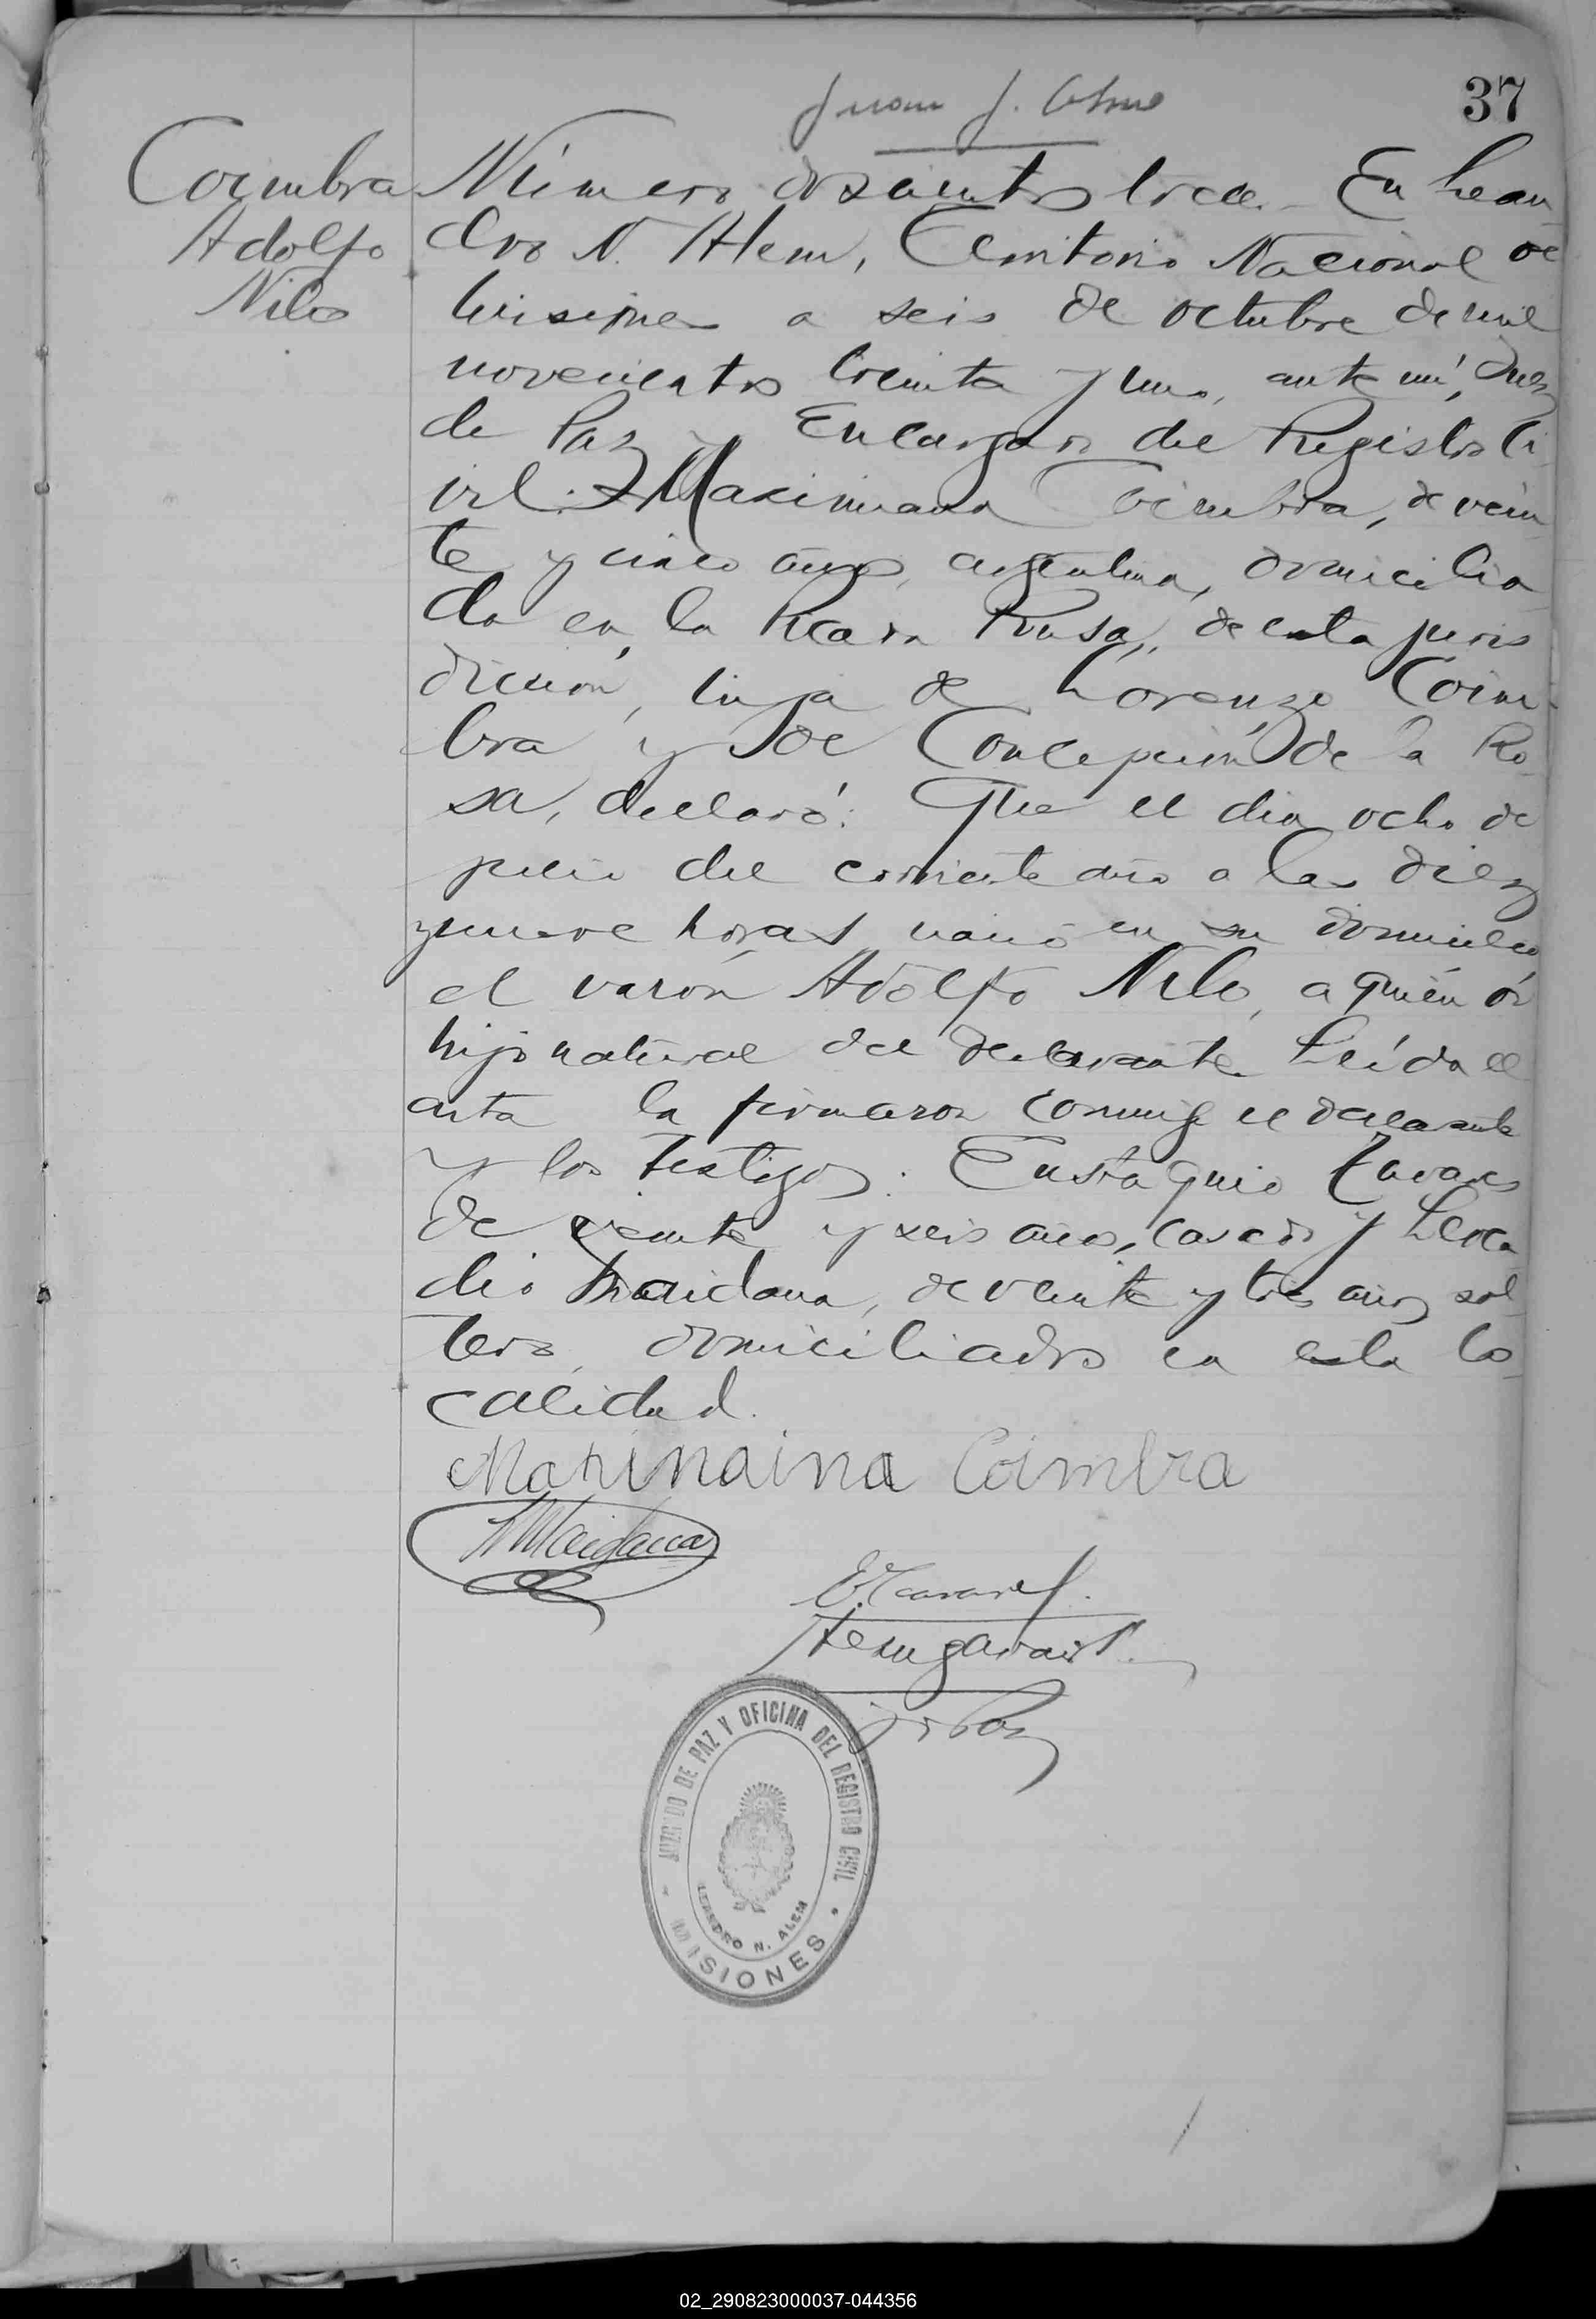 37
Juan J.
Coimbra
Adolfo
Nilo
Número doscientos trece.- En Lean
dro N. Alem, Territorio Nacional de
Misiones a seis de octubre de mil
novecientos treinta y uno, ante mí, Juez
de Paz y Encargado del Registro Ci
vil: Maximiana Coimbra, de vein
te y cinco años, argentina, domicilia
da en la Picada Rusa, de esta juris
dicción, hija de Lorenzo Coim-
bra y de Concepción de la Ro-
sa, declaró: Que el día ocho de
junio del corriente año a las diez
y nueve horas nació en su domicilio
el varón Adolfo Nilo, a quién
hijo natural del declarante. Leída el
acta la firmaron conmigo el declarante
y los testigos: Eustaquio Tavares
de veinte y seis años, casado y Leoca
dio Maidana, de veinte y tres años, sol
tero, domiciliados en esta lo-
calidad.
Maxinaina Coimbra
L Maidana
E. Tavares
J. de Paz
JUZGADO DE PAZ Y OFICINA DEL REGISTRO CIVIL
LEANDRO N. ALEM
MISIONES
02_290823000037-044356